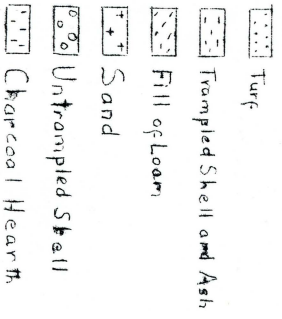 Turf
Trampled Shell and Ash
Fill of Loam
Sand
Untrampled Shell
Charcoal Hearth